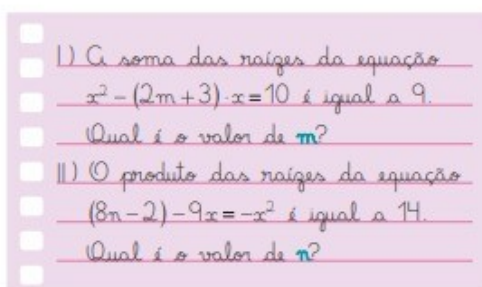 I) A soma das raízes da equação
x² – (2m + 3) · x = 10 é igual a 9.
Qual é o valor de m?
II) O produto das raízes da equação
(8n – 2) – 9x = –x² é igual a 14.
Qual é o valor de n?